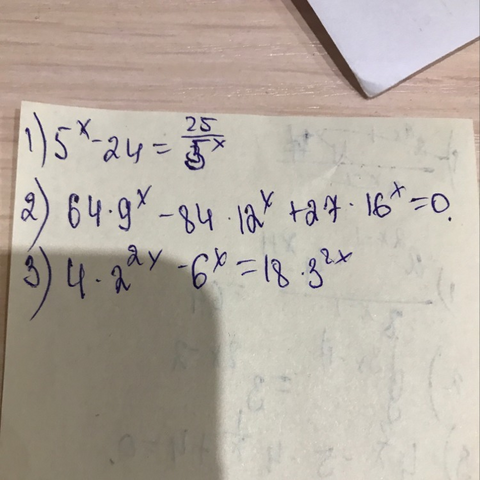 1) 5^x - 24 = 25/5^x
2) 64·9^x - 84·12^x + 27·16^x = 0.
3) 4·2^2x - 6^x = 18·3^2x